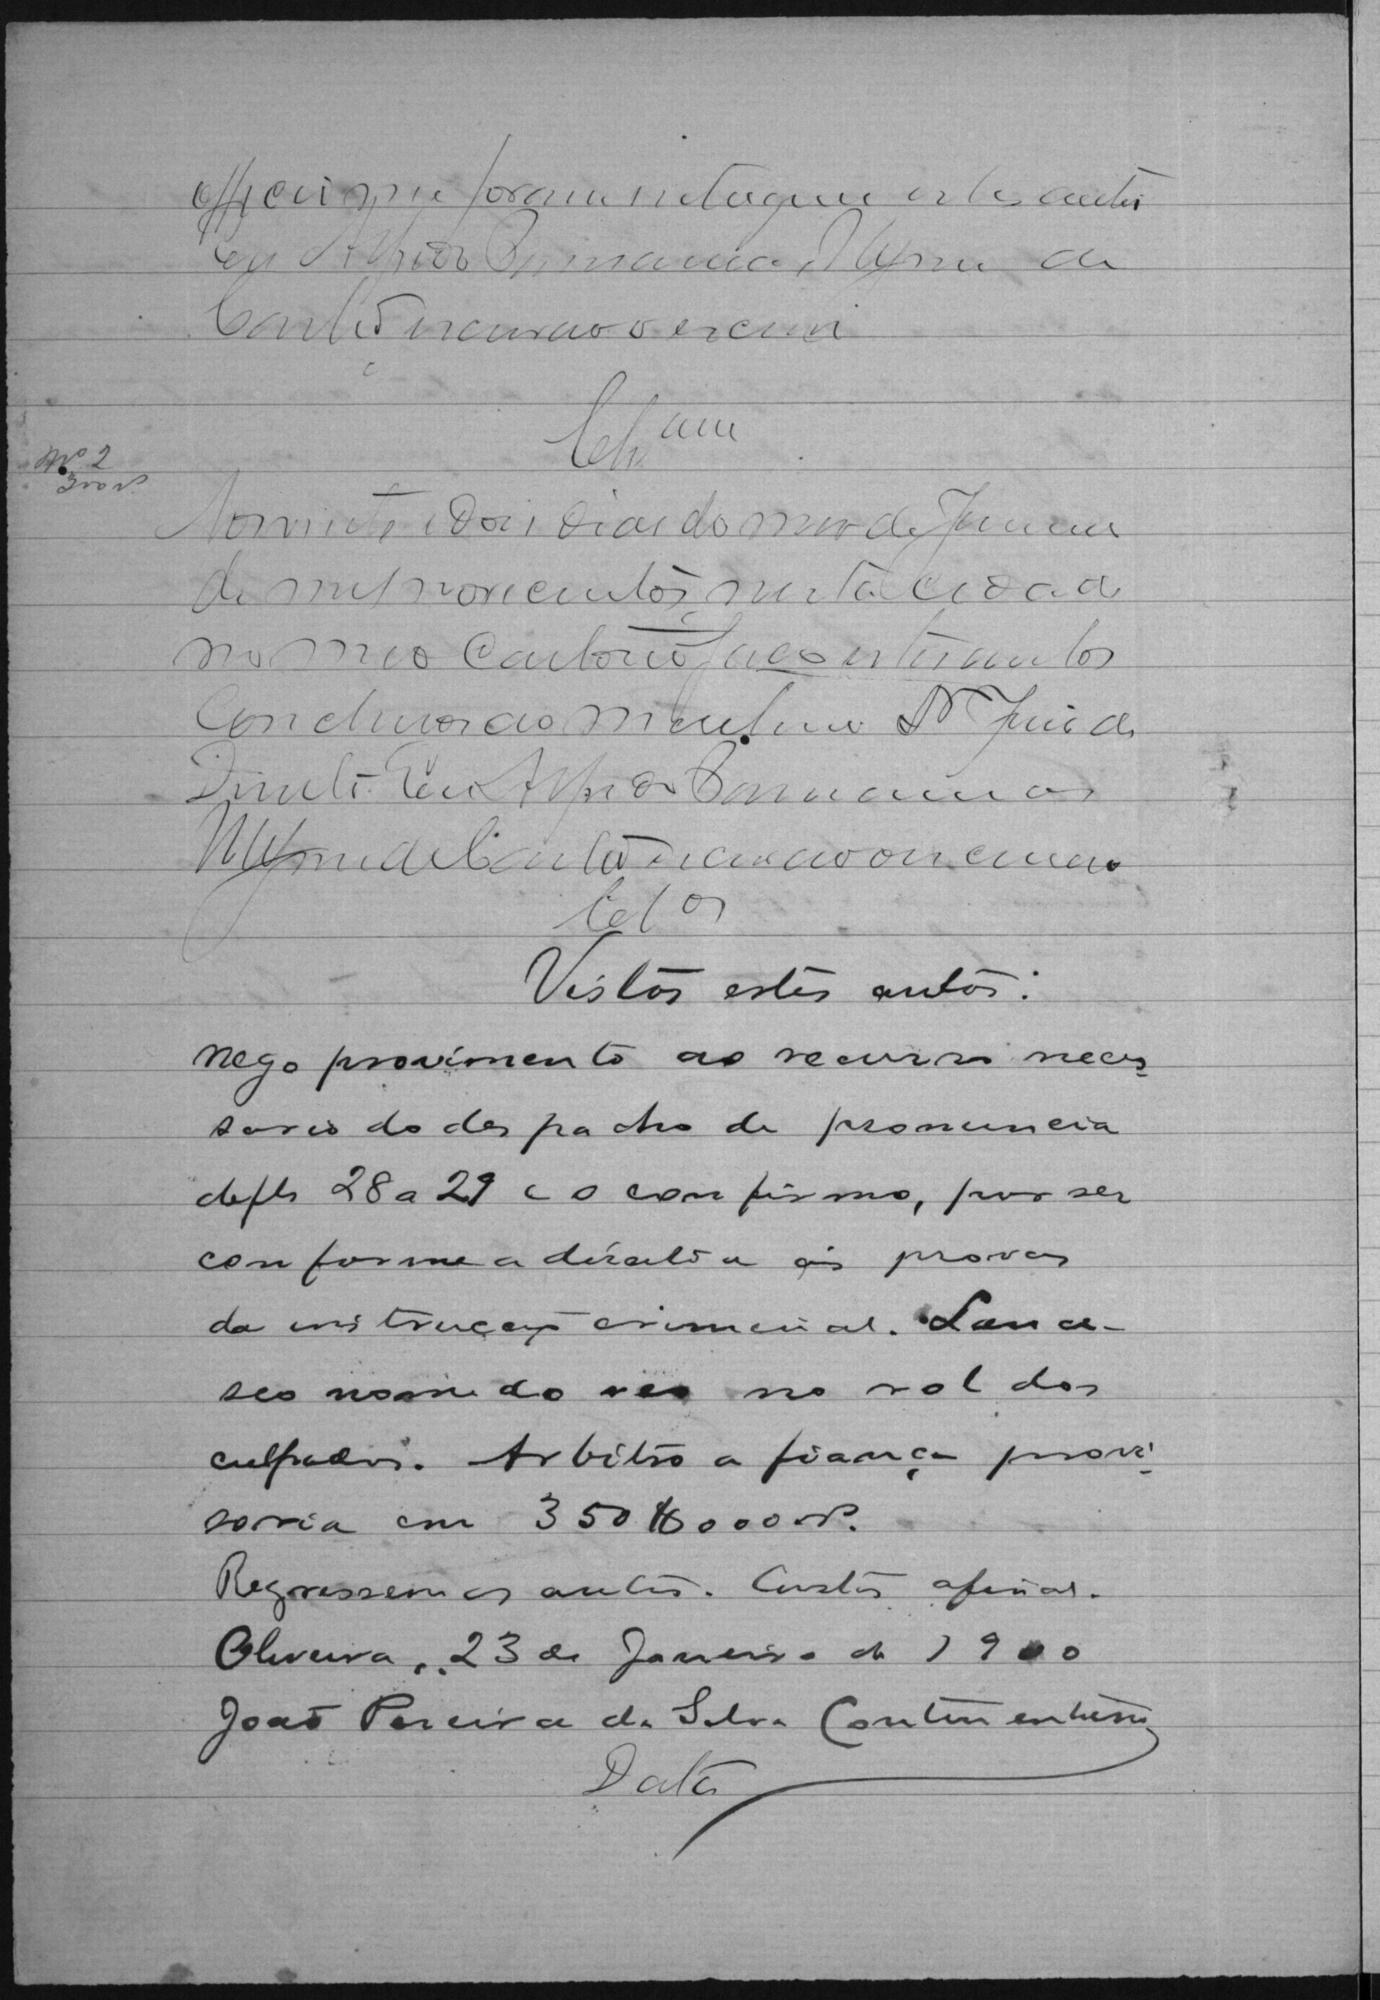 que foram entregues estes autos
eu Alfredo
escrivi
Clsam
Nº 2
300 rs
Aos vinte e Dois dias do mes de Janeiro
de mil novecentos nesta cidade
no meo Cartorio faço estes autos
Conclusos ao Dr Juiz de
Direito Eu Alfredo
o escrevi
Clos
Vistos estes autos:
Nego provimento ao recurso neces
sario do despacho de pronuncia
de fls 28 a 29 e o confirmo, por ser
conforme a direito e ás provas
da instrucção criminal. Lance-
se o nome do reo no rol dos
culpados. Arbitro a fiança provi
soria em 350$000 rs.
Regressem os autos. Custas afinal.
Oliveira, 23 de Janeiro de 1900
João Pereira da Silva Continentino
Data